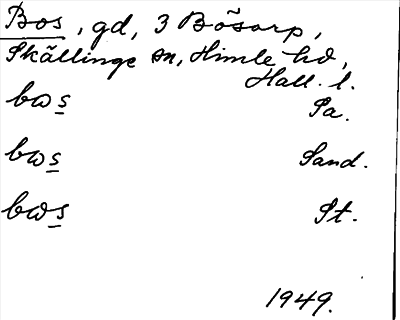 Bos, gd, 3 Bösarp,
Skällinge sn, Himle hd,
Hall. l.
bωs Pa.
bωs Sand.
bωs St.
1949.